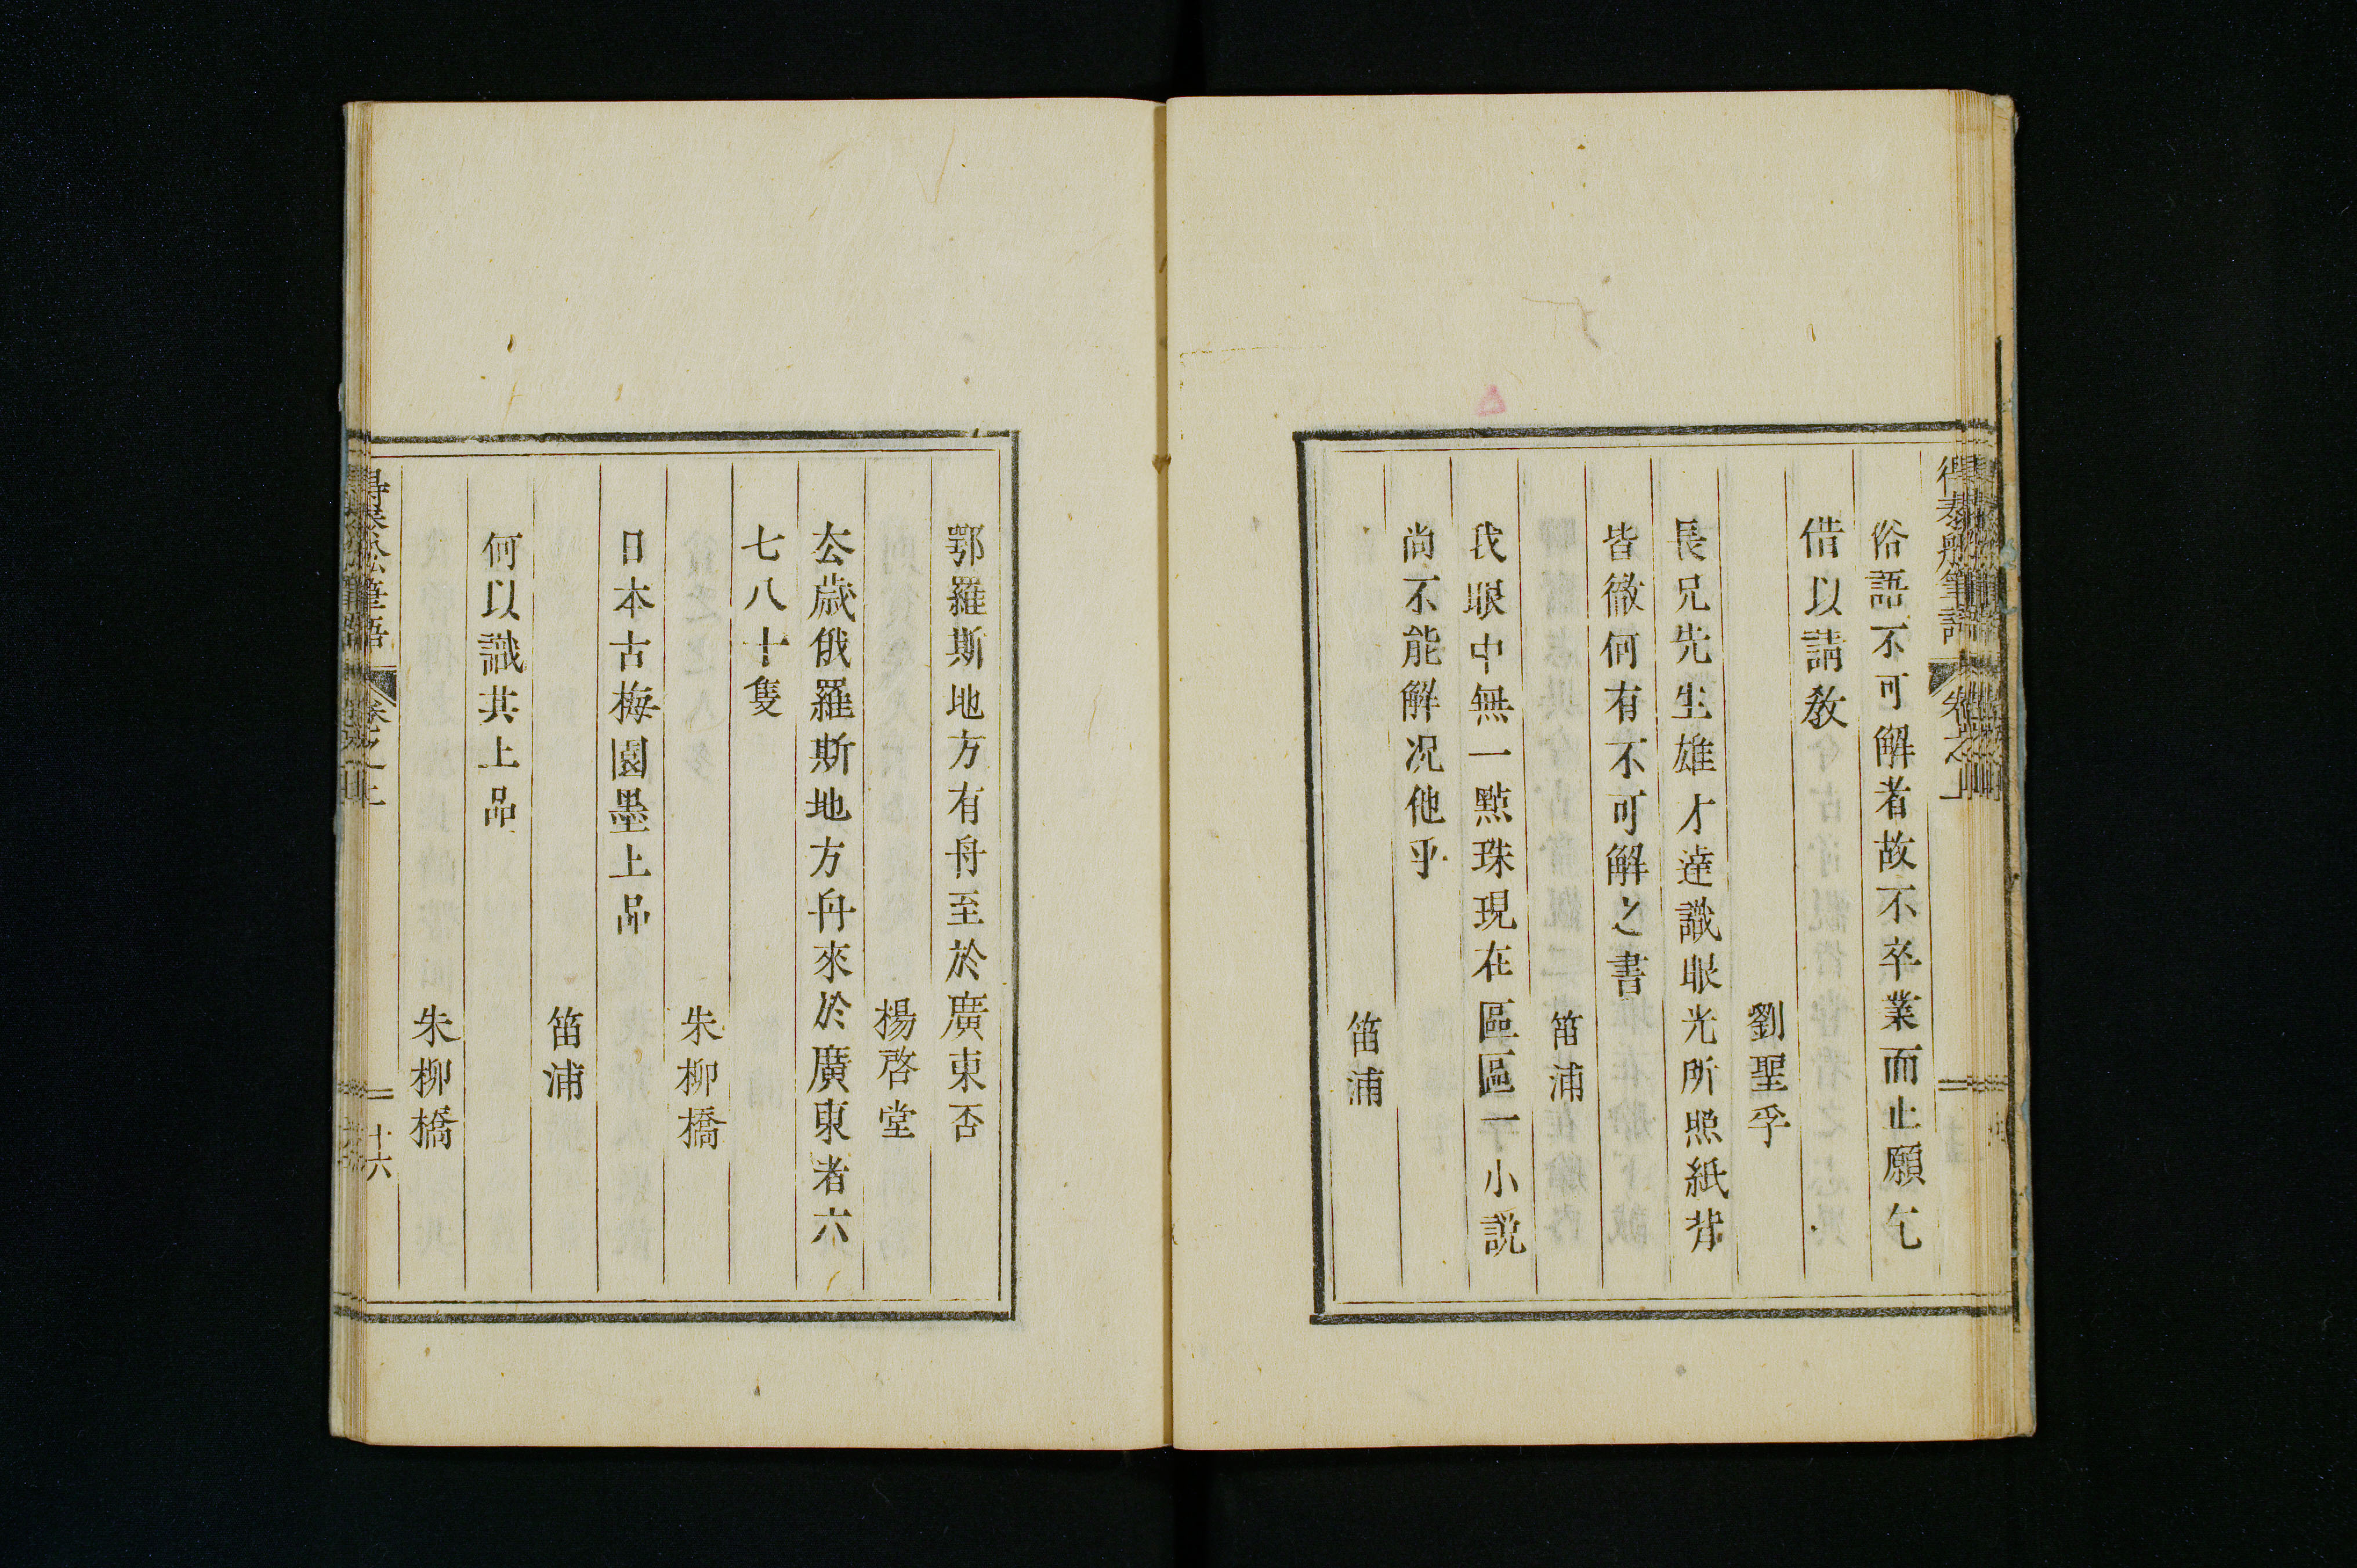 俗語不可解者故不卒業而止願乞
借以請教
劉聖孚
長兄先生雄才達識眼光所照紙背
皆徹何有不可解之書
笛浦
我眼中無一點珠現在區區一小説
尚不能解况他乎
笛浦
得泰船筆語
卷之上
鄂羅斯地方有舟至於廣東否
楊啓堂
去歲俄羅斯地方舟來於廣東者六
七八十隻
朱柳橋
日本古梅園墨上品
笛浦
何以識其上品
朱柳橋
得泰船筆語
卷之上
十六